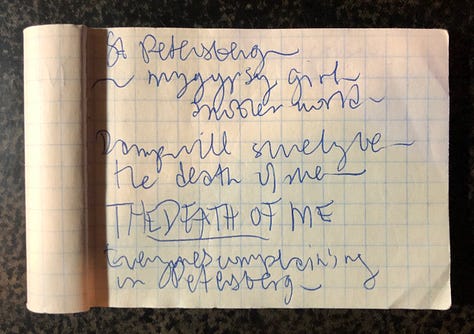 St Petersberg —
~ my gypsy girl
another world ~
Damp will surely be —
the death of me —
THE DEATH OF ME
Everyones complaining
in Petersberg —